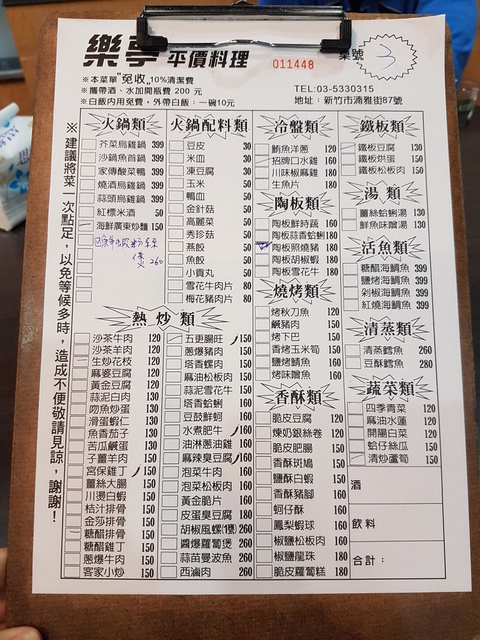 樂亭 平價料理
011448
桌號
3
※本菜單"免收"10%清潔費
※攜帶酒、水加開瓶費 200 元
※白飯內用免費，外帶白飯：一碗10元
TEL:03-5330315
地址：新竹市湳雅街87號
※建議將菜一次點足，以免等候多時，造成不便敬請見諒，謝謝！
火鍋類
芥菜烏雞鍋 399
沙鍋魚首鍋 399
家傳酸菜鴨 399
燒酒烏雞鍋 399
蒜頭烏雞鍋 399
紅標米酒 50
海鮮廣東炒麵 150
260
火鍋配料類
豆皮 30
米血 30
凍豆腐 30
玉米 50
鴨血 30
金針菇 50
高麗菜 50
秀珍菇 50
燕餃 50
魚餃 50
小貢丸 50
雪花牛肉片 80
梅花豬肉片 80
冷盤類
鮪魚洋蔥 120
招牌口水雞 160
川味椒麻雞 180
生魚片
陶板類
陶板鮮時蔬 160
陶板蒜香蛤蜊 180
陶板照燒豬 180
陶板胡椒蝦 180
陶板雪花牛 180
燒烤類
烤秋刀魚 120
鹹豬肉 150
烤下巴 150
香烤玉米筍 150
鹽烤鯖魚 160
烤味噌魚 160
香酥類
脆皮豆腐 120
煉奶銀絲卷 120
脆皮肥腸 150
香酥斑鳩 150
鹽酥白蝦 150
香酥豬腳 160
蚵仔酥 160
鳳梨蝦球 160
椒鹽松板肉 160
椒鹽龍珠 180
脆皮蘿蔔糕 180
鐵板類
鐵板豆腐 130
鐵板烘蛋 150
鐵板松板肉 150
湯類
薑絲蛤蜊湯 130
鮮魚味噌湯 130
活魚類
糖醋海鱺魚 399
鹽烤海鱺魚 399
剁椒海鱺魚 399
紅燒海鱺魚 399
清蒸類
清蒸鱈魚 260
豆酥鱈魚 280
蔬菜類
四季青菜 120
麻油水蓮 120
開陽白菜 150
蛤仔絲瓜 150
清炒蘆筍 150
酒
飲料
合計：
熱炒類
沙茶牛肉 120
沙茶羊肉 120
生炒花枝 120
麻婆豆腐 120
黃金豆腐 120
蒜泥白肉 130
吻魚炒蛋 130
滑蛋蝦仁 130
魚香茄子 130
苦瓜鹹蛋 130
子薑羊肉 150
宮保雞丁 150
薑絲大腸 150
川燙白蝦 150
桔汁排骨 150
金莎排骨 150
糖醋排骨 150
糖醋雞丁 150
蔥爆牛肉 150
客家小炒 150
五更腸旺 150
蔥爆豬肉 150
塔香螺肉 150
麻油松板肉 150
蒜泥雪花牛 150
塔香蛤蜊 160
豆鼓鮮蚵 160
水煮肥牛 160
油淋蔥油雞 160
麻辣臭豆腐 160
泡菜牛肉 160
泡菜松板肉 160
黃金脆片 160
皮蛋臭豆腐 180
胡椒風螺(煲) 260
醬爆蘿蔔煲 260
蒜苗曼波魚 260
西滷肉 260